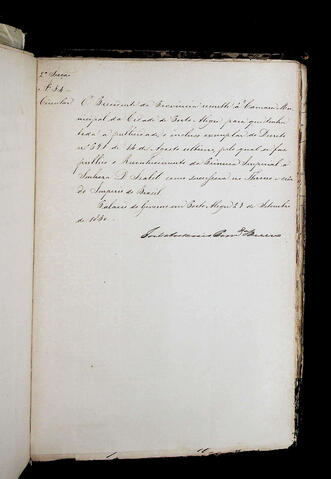 2ª Secção
Nº 34
Circular
O Presidente da Provincia remette á Camara Mu-
nicipal da Cidade de Porto Alegre para que tenha
toda a publicidade o incluso exemplar do Decreto
nº 591 de 14 de Agosto ultimo, pelo qual se fas
publico o Reconhecimento da Princesa Imperial a
Senhora D. Isabel como successora no Throno e Corôa
do Imperio do Brasil
Palacio do Governo em Porto Alegre 23 de Setembro
de 1850.